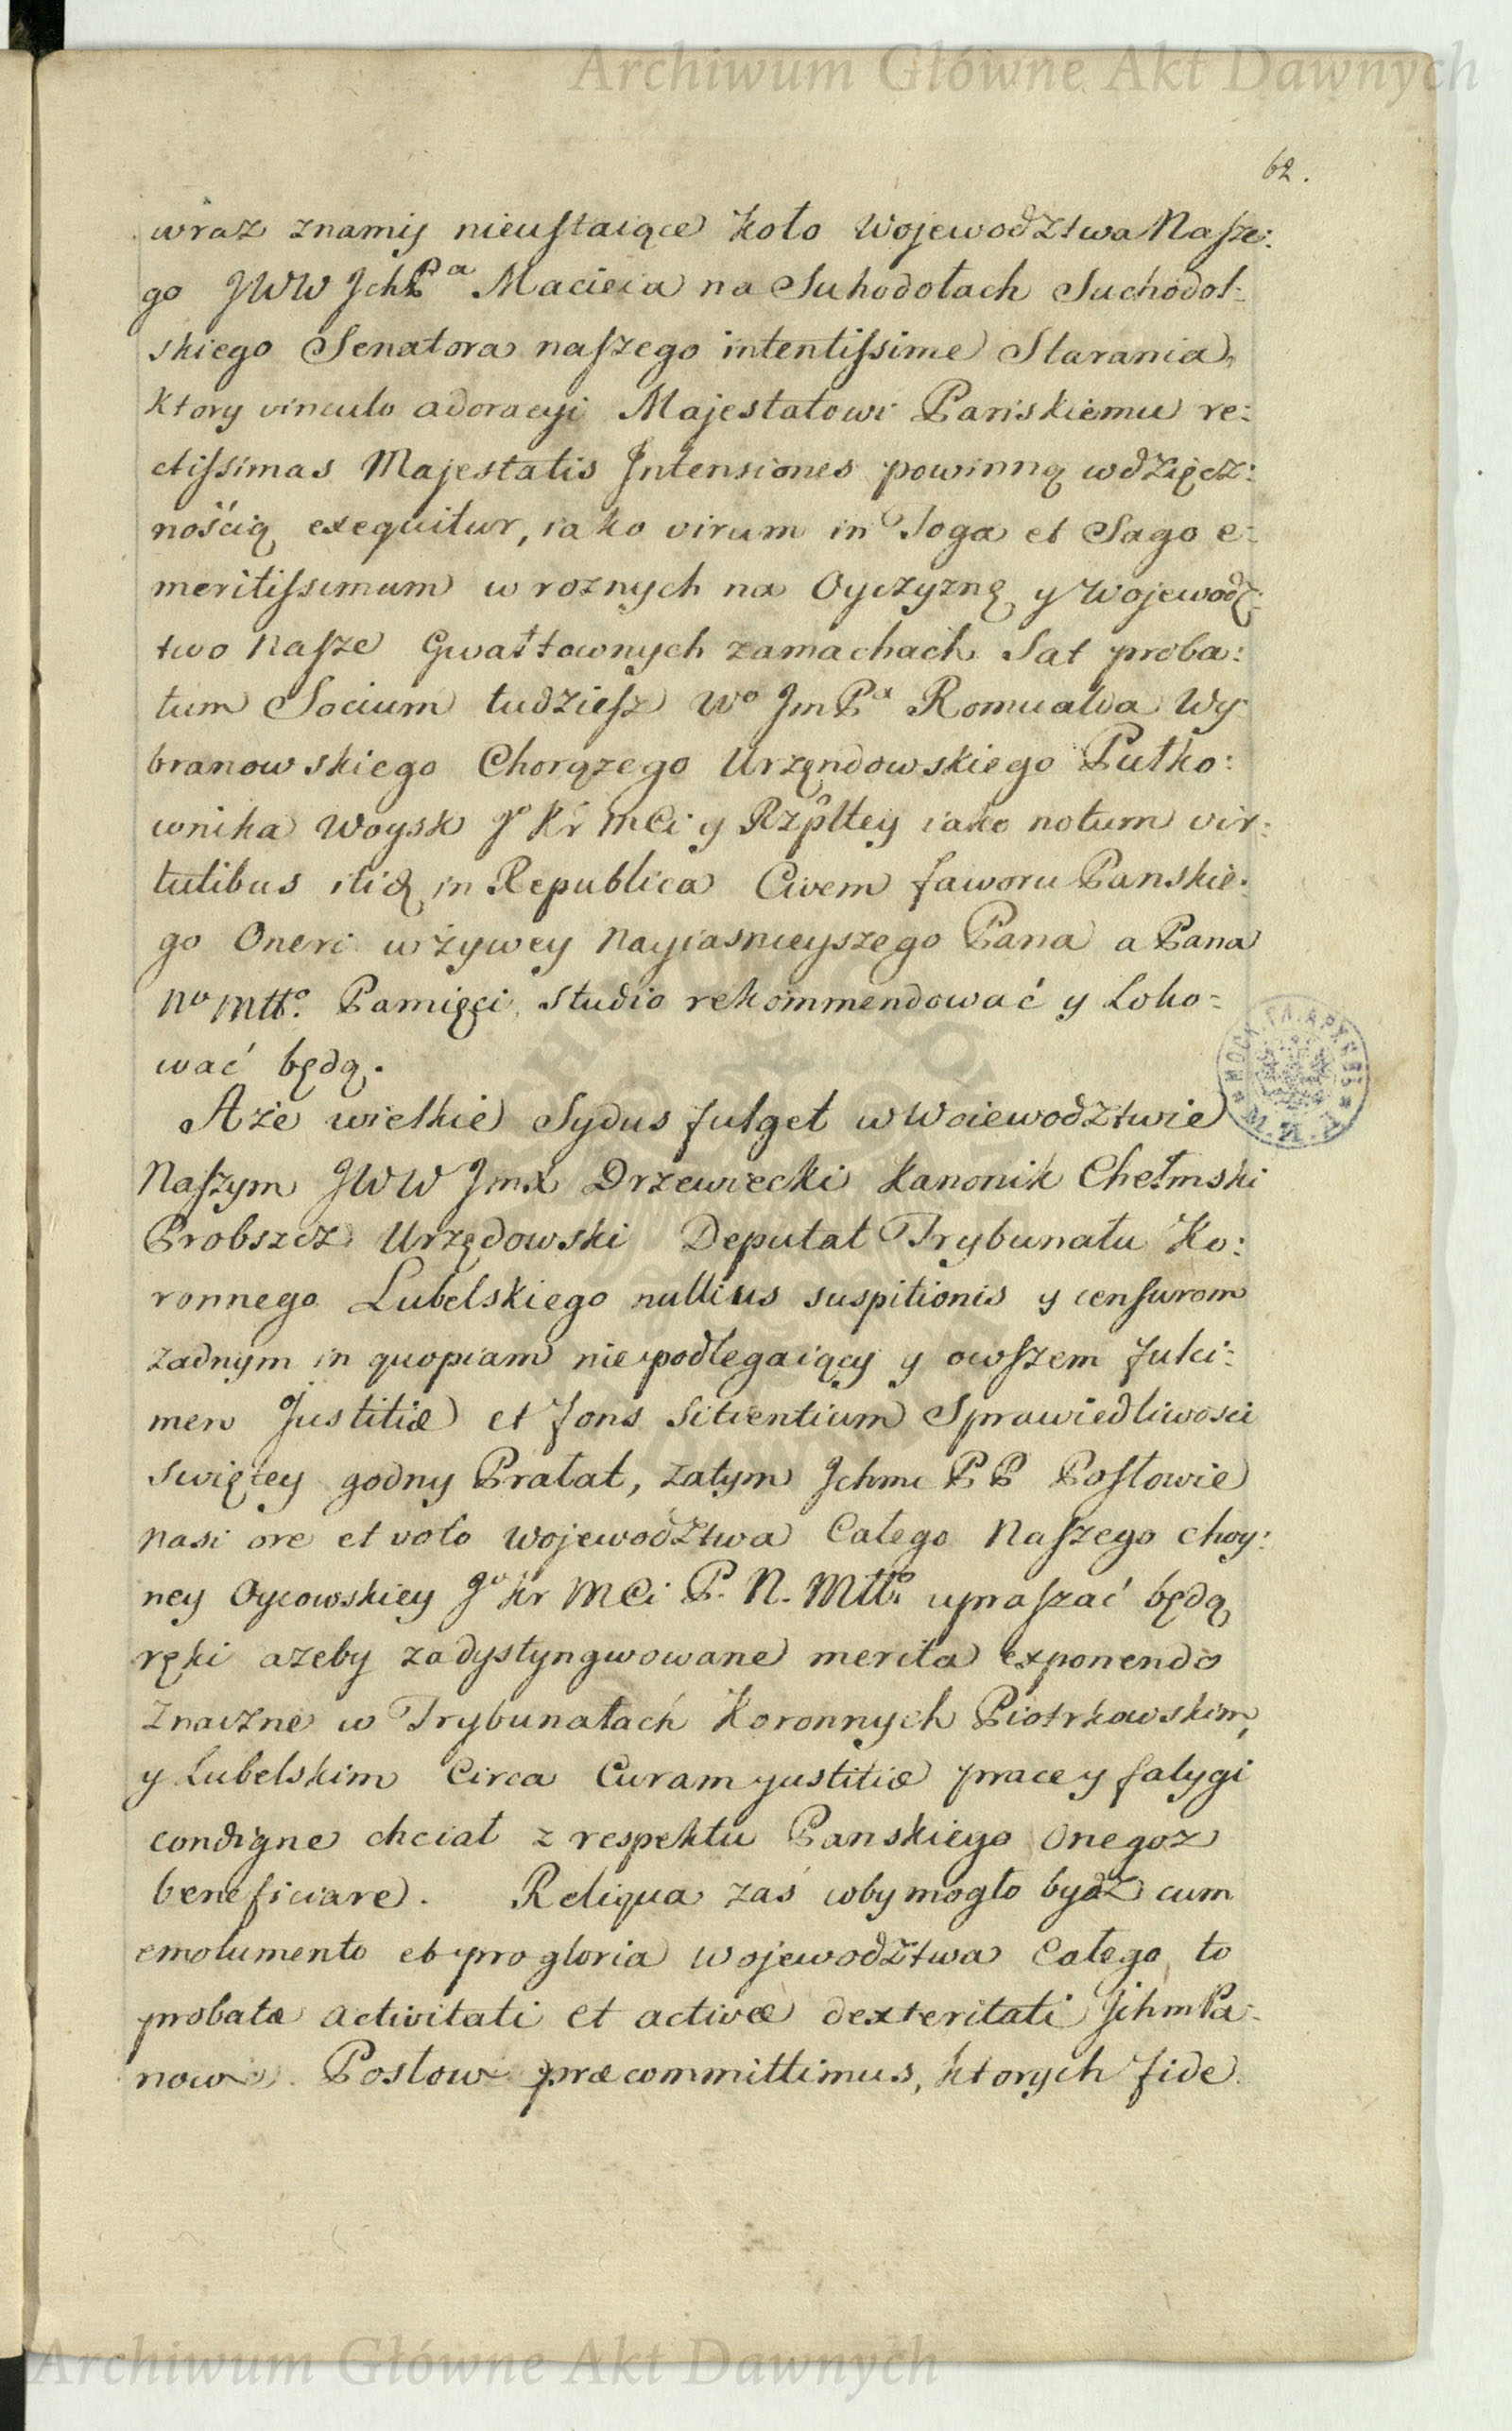 Archiwum Główne Akt Dawnych
62.
wraz znamij nieustaiące koło Wojewodztwa Nasze:
go JWW JchPP<sup>a</sup> Macieia na Suhodołach Suchodol:
skiego Senatora naszego intentissime Starania,
ktory vinculo adoracyi Majestatowi Pańskiemu re:
ctissimas Majestatis Intensiones powinną wdzięcz:
nością exequitur, iako virum in Toga et Sago e:
meritissimum w roznych na Oyczyznę y Wojewodz:
two Nasze Gwałtownych zamachach Sat proba:
tum Socium tudziesz W<sup>o</sup> JmP<sup>a</sup> Romualda Wy
branowskiego Chorązego Urzęndowskiego Pułko:
wnika Woysk J<sup>o</sup> Kr Mci y Rzpltey iako notum vir:
tutibus in Republica Civem faworu Panskie:
go Oneri w żywey Nayiasnieyszego Pana a Pana
N<sup>o</sup> Mtt<sup>o</sup>. Pamięci studio rekommendować y Loko:
wać będą.
Aże wielkie Sydus fulget w Woiewodztwie
Naszym JWW Jmx Drzewiecki Kanonik Chełmski
Probszcz Urzędowski Deputat Trybunału Ko:
ronnego Lubelskiego nullius suspitionis y censurom
żadnym in quopiam niepodlegaiący y owszem fulci:
men Justitiæ et fons Sitientium Sprawiedliwosci
swiętey godny Prałat, zatym Jchmc PP Posłowie
nasi ore et voto Wojewodztwa Całego Naszego choy:
ney Oycowskiey J<sup>o</sup> Kr Mci P. N. Mtt<sup>o</sup>. upraszać będą
ręki azeby zadystyngwowane merita exponendo
Znaczne w Trybunałach Koronnych Piotrkowskim,
y Lubelskim Circa Curam justitiæ prace y fatygi
condigne chciał z respektu Panskiego Onegoz
beneficiare. Reliqua zaś coby mogło bydz cum
emolumento et pro gloria Wojewodztwa Całego to
probatæ activitati et activæ dexteritati JchmPa:
now Posłow præcommittimus, ktorych fide
МОСК. ГЛ. АРХИВЪ
М. И. Д.
Archiwum Główne Akt Dawnych